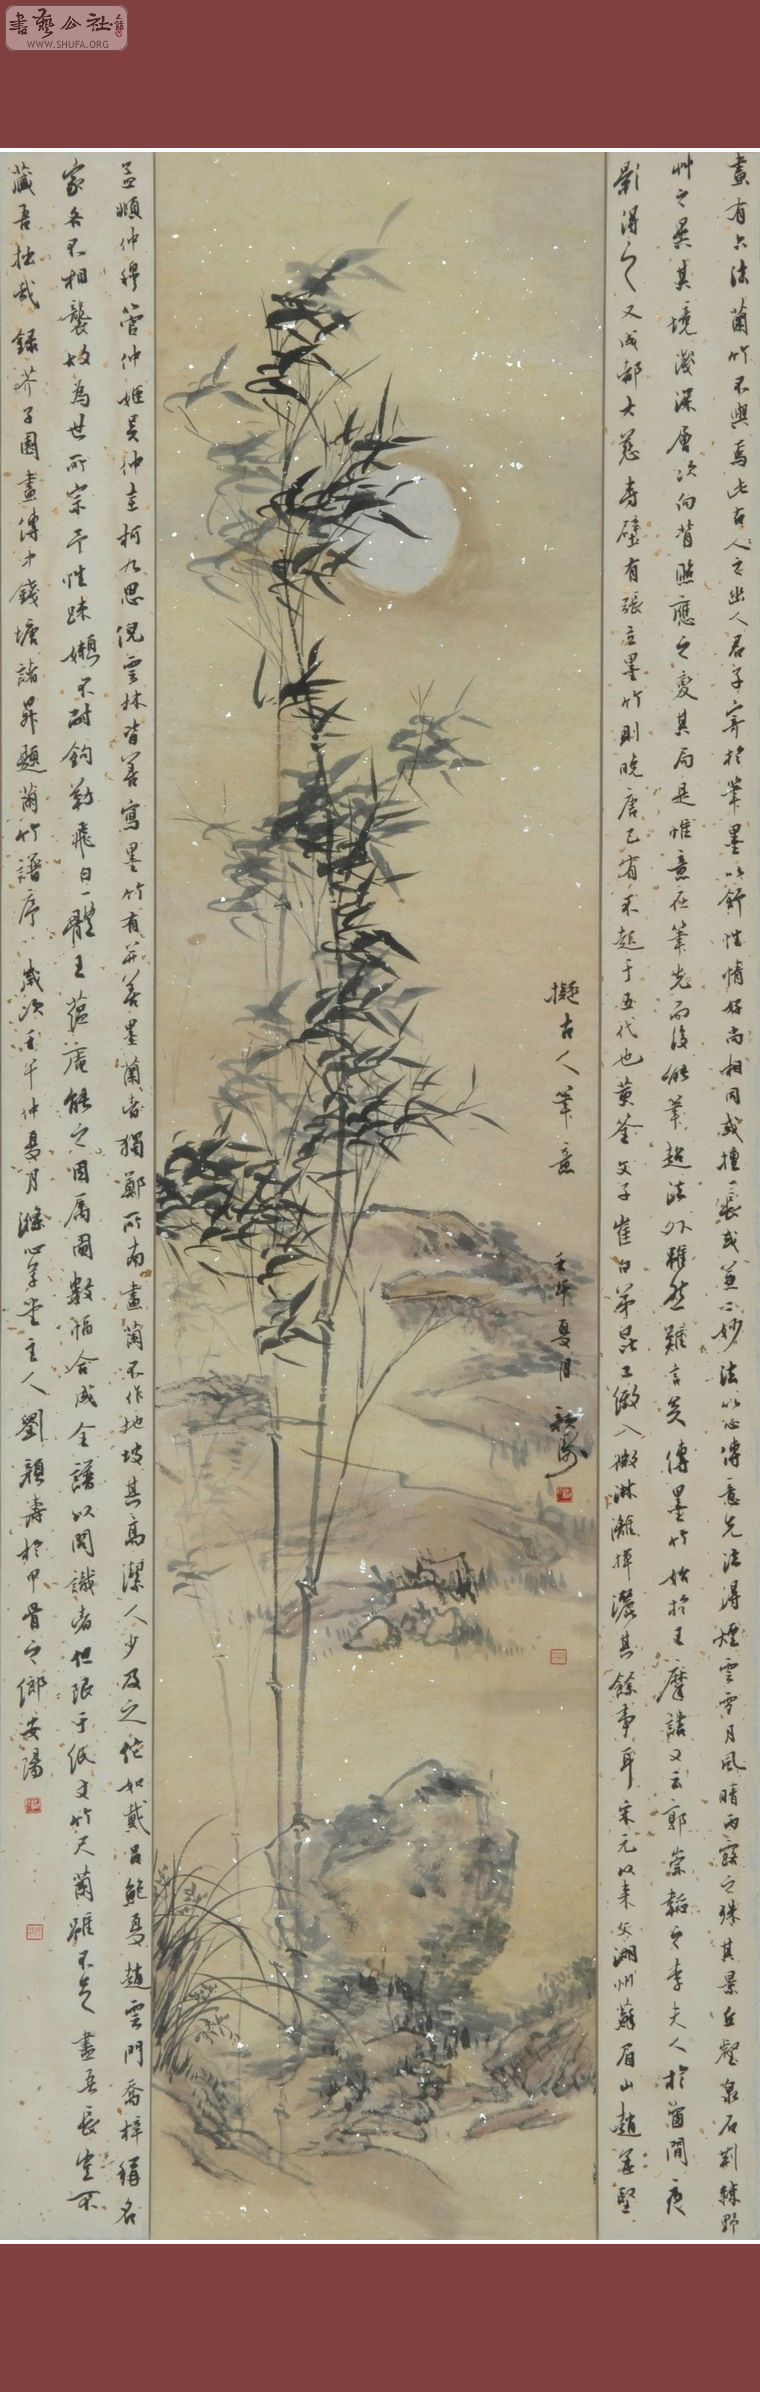 書藝公社
WWW.SHUFA.ORG
畫有六法蘭竹不與焉此古人之出人君子寄於筆墨以舒性情好尚相同或擅一長或兼二妙法以心傳意先法得煙雲雪月風晴雨露之殊其景丘壑泉石荊棘野
艸之異其境淺深層次向背照應之變其局是惟意在筆先而後能筆超法外雖然難言矣傳墨竹始於王摩詰又云郭崇韜之李夫人於窗間夜
影得之又成都大慈寺壁有張立墨竹則晚唐已有不起于五代也黃筌父子崔白弟昆工緻入微淋漓揮灑其餘事耳宋元以来文湖州蘇眉山趙孟堅
孟頫仲穆管仲姬吳仲圭柯九思倪雲林皆善寫墨竹有并善墨蘭者獨鄭所南畫蘭不作地坡其高潔人少及之他如戴呂鮑夏趙雲門喬梓稱名
家各不相襲故為世所宗予性疎嬾不耐鉤勒飛白一體王蘊庵能之因屬圖數幅合成全譜以問識者但限于紙丈竹尺蘭雖不足盡吾長豈不
藏吾拙哉 錄芥子園畫傳中錢塘諸昇題蘭竹譜序 歲次壬午仲夏月滌心草堂主人劉穎濤於甲骨之鄉安陽
擬古人筆意
壬午夏月